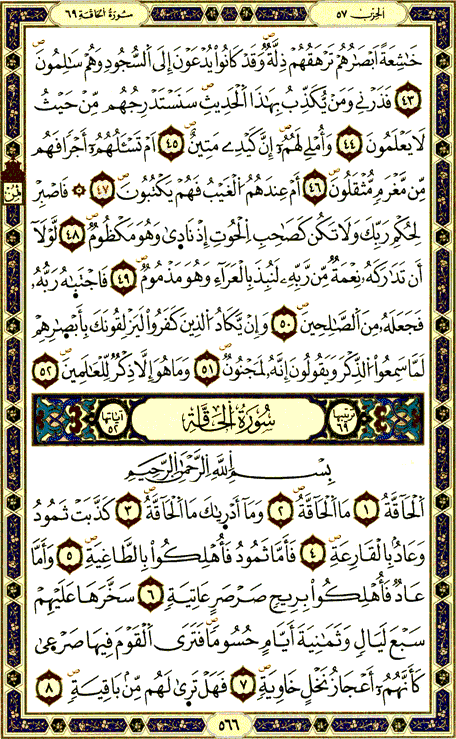 الحزب ٥٧
سورة الحاقة ٦٩
خَٰشِعَةً أَبْصَٰرُهُمْ تَرْهَقُهُمْ ذِلَّةٌ وَقَدْ كَانُوا۟ يُدْعَوْنَ إِلَى اَلسُّجُودِ وَهُمْ سَٰلِمُونَ
٤٣ فَذَرْنِے وَمَنْ يُّكَذِّبُ بِهَٰذَا اَلْحَدِيثِ سَنَسْتَدْرِجُهُم مِّنْ حَيْثُ
لَا يَعْلَمُونَ ٤٤ وَأُمْلِے لَهُمُۥٓ إِنَّ كَيْدِے مَتِينٌ ٤٥ أَمْ تَسْـَٔلُهُمُۥٓ أَجْرًا فَهُم
مِّن مَّغْرَمٍ مُّثْقَلُونَ ٤٦ أَمْ عِندَهُمُ اَلْغَيْبُ فَهُمْ يَكْتُبُونَ ٤٧ ۞ فَاصْبِرْ
لِحُكْمِ رَبِّكَ وَلَا تَكُن كَصَٰحِبِ اِلْحُوتِ إِذْ نَادَىٰ وَهُوَ مَكْظُومٌ ٤٨ لَّوْلَآ
أَن تَدَٰرَكَهُۥ نِعْمَةٌ مِّن رَّبِّهِۦ لَنُبِذَ بِالْعَرَآءِ وَهُوَ مَذْمُومٌ ٤٩ فَاجْتَبَٰهُ رَبُّهُۥ
فَجَعَلَهُۥ مِنَ اَلصَّٰلِحِينَ ٥٠ وَإِنْ يَّكَادُ اُلذِينَ كَفَرُوا۟ لَيَزْلِقُونَكَ بِأَبْصَٰرِهِمْ
لَمَّا سَمِعُوا۟ اُلذِّكْرَ وَيَقُولُونَ إِنَّهُۥ لَمَجْنُونٌ ٥١ وَمَا هُوَ إِلَّا ذِكْرٌ لِّلْعَٰلَمِينَ ٥٢
ترتيبها ٦٩ سُورَةُ الْحَاقَّة آياتها ٥٢
بِسْمِ اللَّهِ الرَّحْمَٰنِ الرَّحِيمِ
اَلْحَآقَّةُ ١ مَا اَلْحَآقَّةُ ٢ وَمَآ أَدْرَىٰكَ مَا اَلْحَآقَّةُ ٣ كَذَّبَتْ ثَمُودُ
وَعَادٌۢ بِالْقَارِعَةِ ٤ فَأَمَّا ثَمُودُ فَأُهْلِكُوا۟ بِالطَّاغِيَةِ ٥ وَأَمَّا
عَادٌ فَأُهْلِكُوا۟ بِرِيحٍ صَرْصَرٍ عَاتِيَةٍ ٦ سَخَّرَهَا عَلَيْهِمْ
سَبْعَ لَيَالٍ وَثَمَٰنِيَةَ أَيَّامٍ حُسُومًا فَتَرَى اَلْقَوْمَ فِيهَا صَرْعَىٰ
كَأَنَّهُمُۥٓ أَعْجَازُ نَخْلٍ خَاوِيَةٍ ٧ فَهَلْ تَرَىٰ لَهُم مِّنۢ بَاقِيَةٍ ٨
٥٦٦